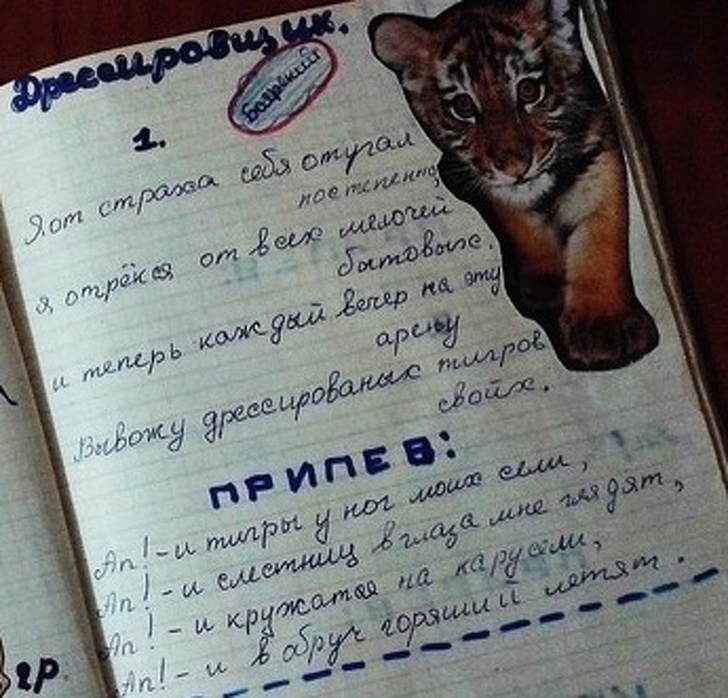 Дрессировщик.
Боярский
1.
Я от страха себя отучал
постепенно,
я отрёкся от всех мелочей
бытовых.
и теперь каждый вечер на эту
арену
Вывожу дрессированых тигров
свойх.
ПРИПЕВ:
Ап! - и тигры у ног моих сели,
Ап! - и слестниц в глаза мне глядят,
Ап! - и кружатся на карусели,
Ап! - и в обруч горящий летят.
гр.